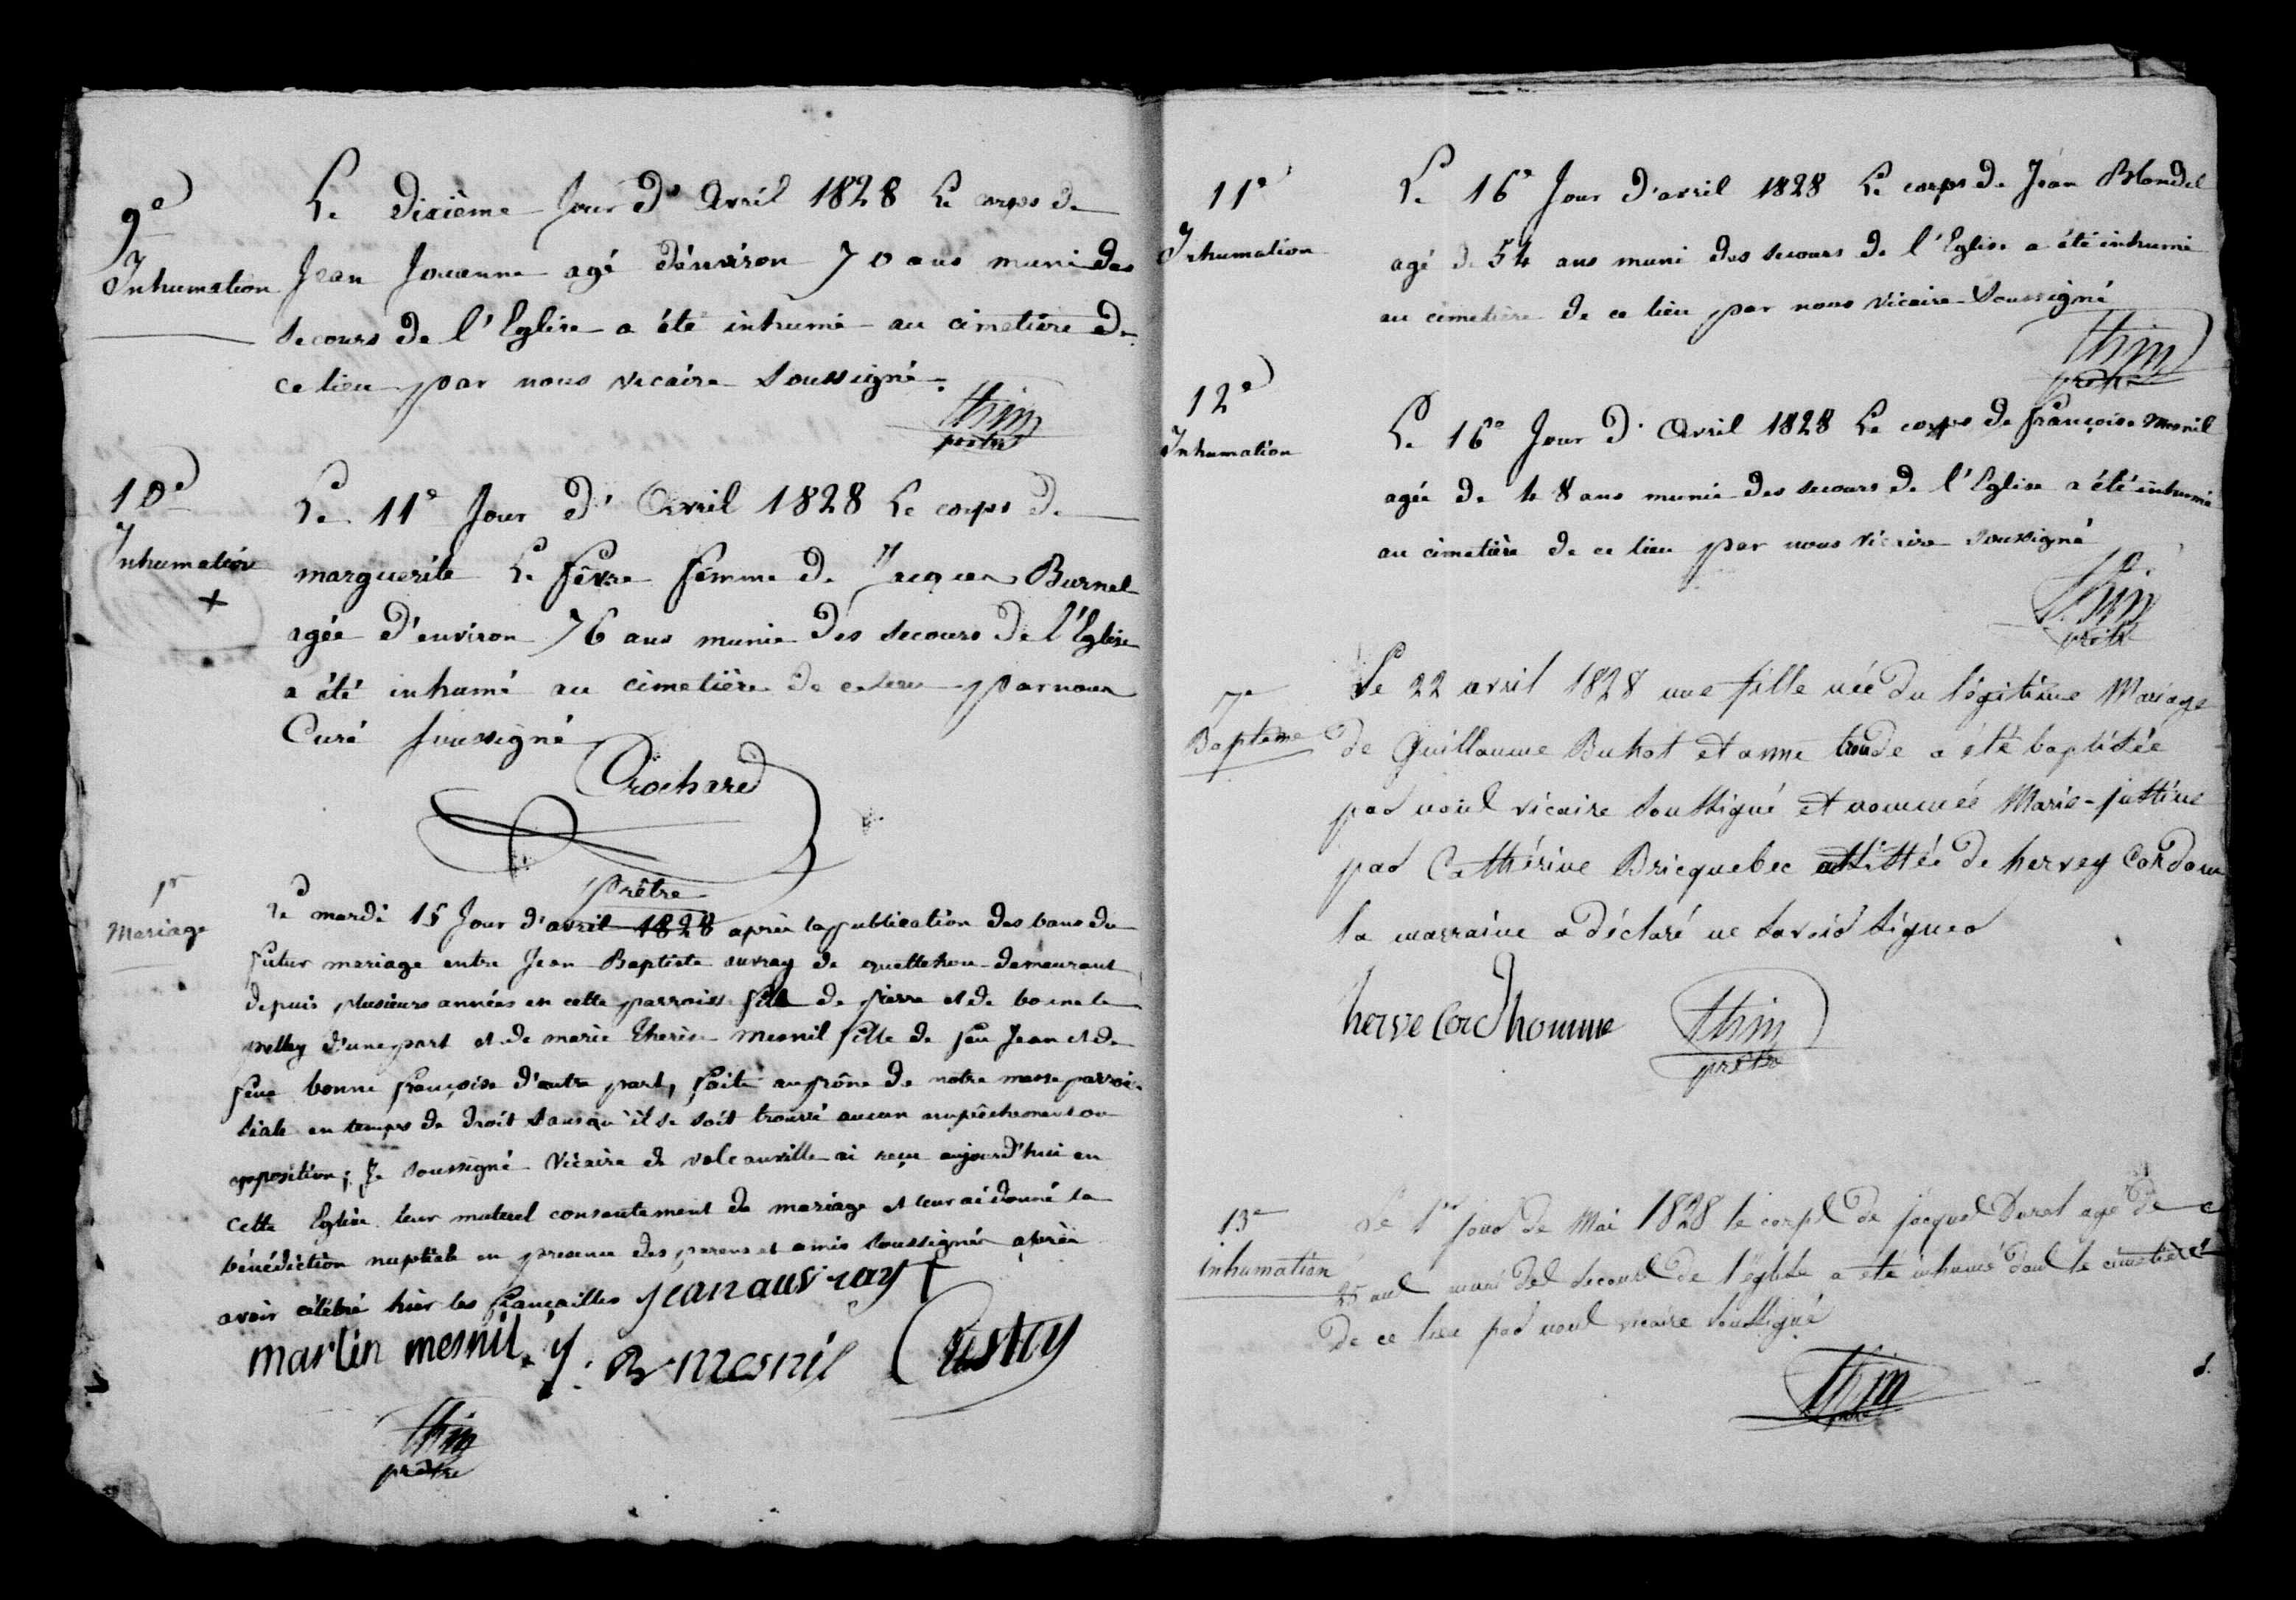 9e
Inhumation
Le dixième Jour d'Avril 1828 Le corps de
Jean Jouanne agé d'environ 70 ans muni des
secours de l'Eglise a été inhumé au cimetière de
ce lieu par nous vicaire soussigné.
thin
prêtre
10e
Inhumation
+
Le 11e Jour d'Avril 1828 Le corps de
marguerite Le fêvre femme de Jacques Burnel
agée d'environ 76 ans munie des secours de l'Eglise
a été inhumé au cimetière de ce lieu par nous
Curé soussigné
Crochard
prêtre
1er
Mariage
Le mardi 15 Jour d'avril 1828 après la publication des bans du
futur mariage entre Jean Baptiste auvray de quettehou demeurant
depuis plusieurs années en cette parroisse fils de pierre et de bonne le
d'une part et de marie therèse mesnil fille de feu Jean et de
feue bonne françoise d'autre part, faite au prône de notre messe parrois-
siale en temps de droit sans qu'il se soit trouvé aucun empêchement ou
opposition; Je soussigné Vicaire de valcanville ai reçu aujourd'hui en
cette Eglise leur mutuel consentement de mariage et leur ai donné la
bénédiction nuptiale en presence des parens et amis soussignés après
avoir célébré hier les fiançailles jean auvray
martin mesnil. J. B mesnil
thin
prêtre
11e
Inhumation
Le 16e Jour d'avril 1828 Le corps de Jean Blondel
agé de 54 ans muni des secours de l'Eglise a été inhumé
au cimetière de ce lieu par nous Vicaire Soussigné
thin
prêtre
12e
Inhumation
Le 16e Jour d'Avril 1828 Le corps de françoise mesnil
agée de 48 ans munie des secours de l'Eglise a été inhumé
au cimetière de ce lieu par nous Vicaire soussigné
thin
prêtre
7e
Baptême
Le 22 avril 1828 une fille née du légitime Mariage
de Guillaume Buhot et anne trude a été baptisée
par nous vicaire soussigné et nommée Marie-justine
par Cathérine Bricquebec assistée de hervey Cordom
la marraine a déclaré ne savoir signer
herve Cord'homme
thin
prêtre
13e
inhumation
Le 1er jour de Mai 1828 le corps de jacques Duret agé de
ans muni des secours de l'église a été inhumé dans le cimetière
de ce lieu par nous vicaire soussigné
thin
prêtre